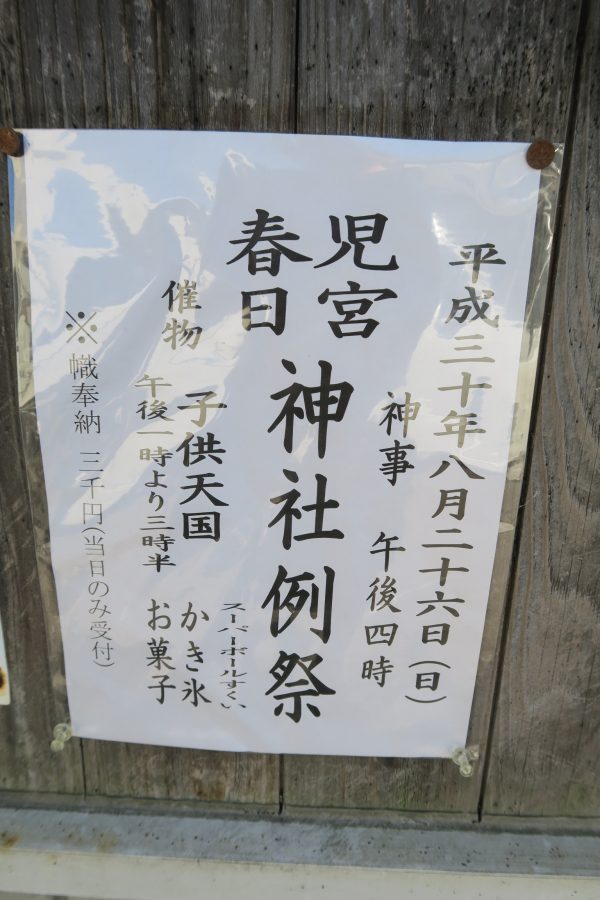 平成三十年八月二十六日(日)
神事 午後四時
児宮
春日
神社例祭
催物 子供天国
午後一時より三時半
スーパーボールすくい
かき氷
お菓子
※幟奉納 三千円(当日のみ受付)